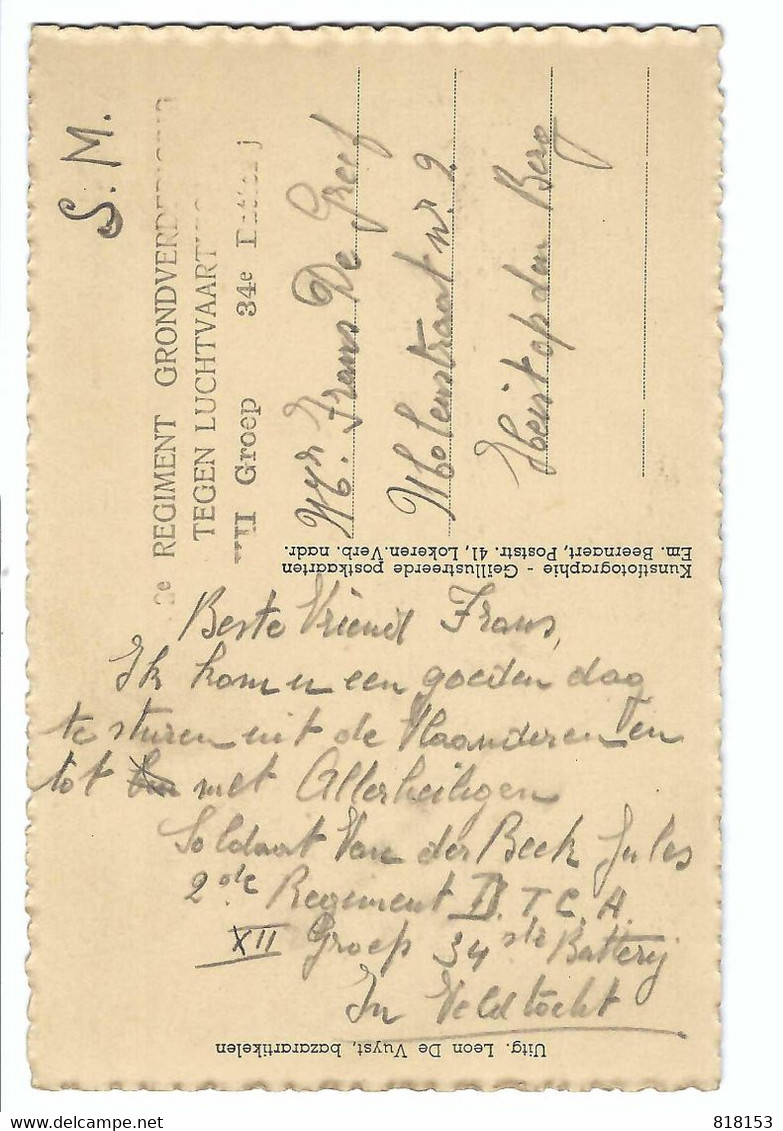 S.M.
2e REGIMENT GRONDVERDEDIGING
TEGEN LUCHTVAART
XII Groep 34e Batterij
Mr. Frans De Greef
Molenstraat nr 9.
Heist op den Berg
Kunstfotographie - Geïllustreerde postkaarten
Em. Beernaert, Poststr. 41, Lokeren. Verb. nadr.
Beste Vriend Frans,
Ik kom u een goeden dag
te sturen uit de Vlaanderen en
tot met Allerheiligen
Soldaat Van der Beek Jules
2de Regiment D.T.C.A.
XII Groep 34ste Batterij
In Veldtocht
Uitg. Leon De Vuyst, bazarartikelen
818153